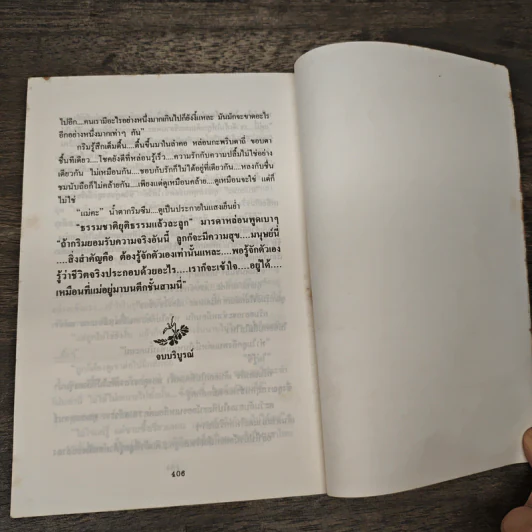 ไปอีก...คนเรามีอะไรอย่างหนึ่งมากเกินไปก็ยังงี้แหละ มันมักจะขาดอะไร
อีกอย่างหนึ่งมากเท่าๆ กัน"
กริมรู้สึกเต็มตื้น...ตื้นขึ้นมาในลำคอ หล่อนกะพริบตาถี่ ขอบตา
ชื้นทีเดียว...โชคยังดีที่หล่อนรู้เร็ว...ความรักกับความปลื้มไม่ใช่อย่าง
เดียวกัน ไม่เหมือนกัน...ชอบกับรักก็ไม่ได้อยู่ที่เดียวกัน...หลงกับชื่น
ชมนับถือก็ไม่คล้ายกัน...เพียงแต่ดูเหมือนคล้าย...ดูเหมือนจะใช่ แต่ก็
ไม่ใช่
"แม่คะ" น้ำตากริมซึม...ดูเป็นประกายในแสงเย็นย่ำ
"ธรรมชาติยุติธรรมแล้วละลูก" มารดาหล่อนพูดเบาๆ
"ถ้ากริมยอมรับความจริงอันนี้ ลูกก็จะมีความสุข...มนุษย์นี่
....สิ่งสำคัญคือ ต้องรู้จักตัวเองเท่านั้นแหละ....พอรู้จักตัวเอง
รู้ว่าชีวิตจริงประกอบด้วยอะไร....เราก็จะเข้าใจ....อยู่ได้....
เหมือนที่แม่อยู่มาบนตึกชั้นสามนี่"
จบบริบูรณ์
406